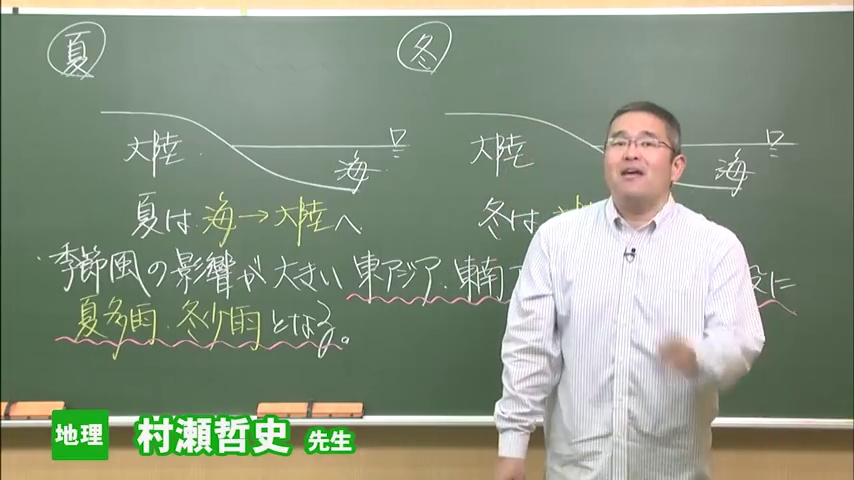 夏
冬
大陸
海
大陸
海
夏は 海→大陸へ
冬は
季節風の影響が大きい 東アジア・東南ア に
夏多雨・冬少雨となる。
地理 村瀬哲史 先生